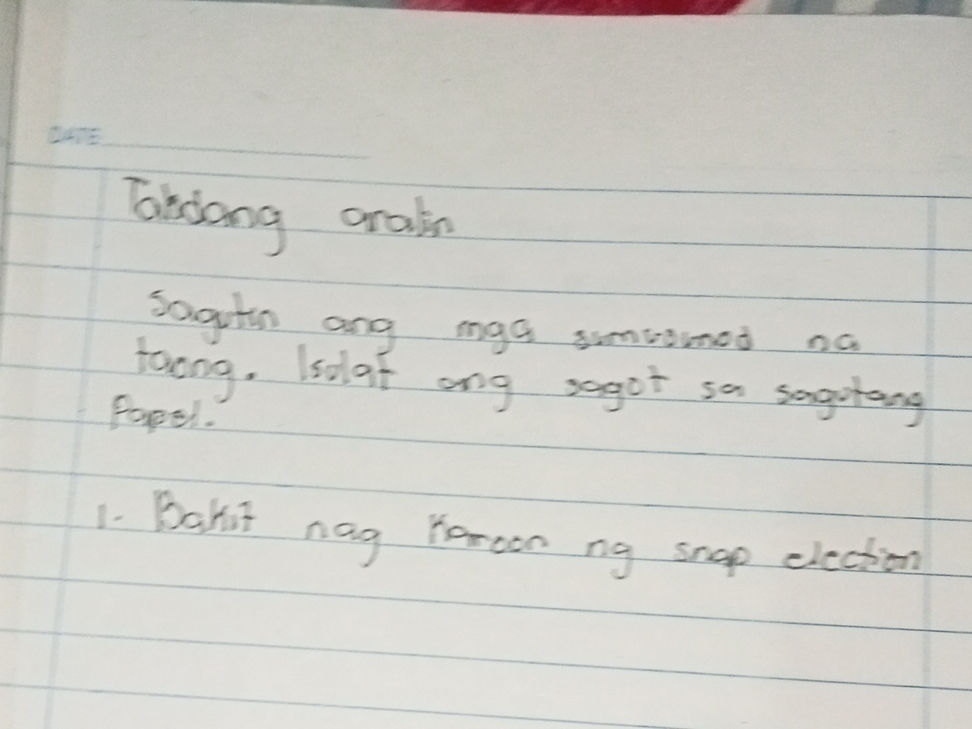 DATE
Takdang aralin
Sagutin ang mga sumusunod na
taong. Isulat ang sagot sa sagutang
Papel.
1. Bakit nag Karoon ng snap election